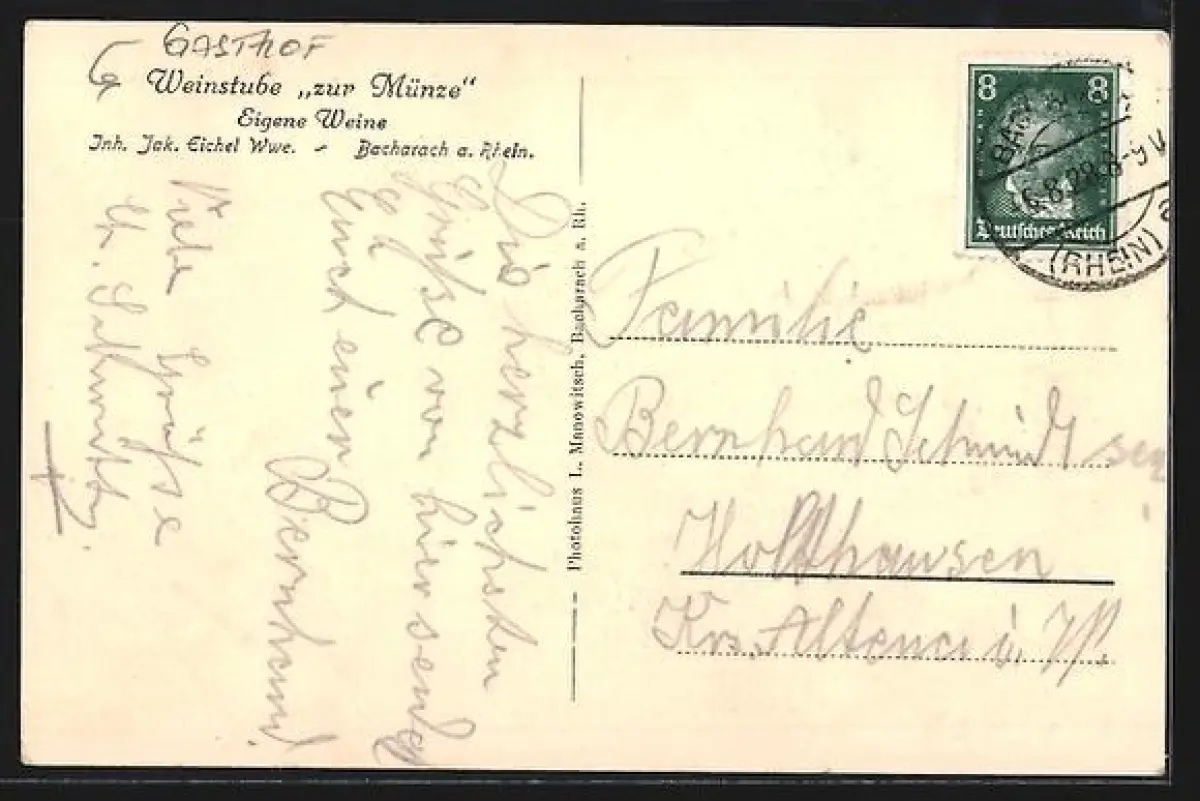 GASTHOF
Weinstube „zur Münze"
Eigene Weine
Inh. Jak. Eichel Wwe. - Bacharach a. Rhein.
Die herzlichsten
Grüsse von hier send
et
Euch euer
Bernhard.
Viele Grüsse
H. Schmidt.
Photohaus L. Manowitsch, Bacharach a. Rh.
8 8
Deutsches Reich
6.8.29.8-9V
(RHEIN)
a
Familie
Bernhard Schmidt sen
Holthausen
Krs. Altena i. W.